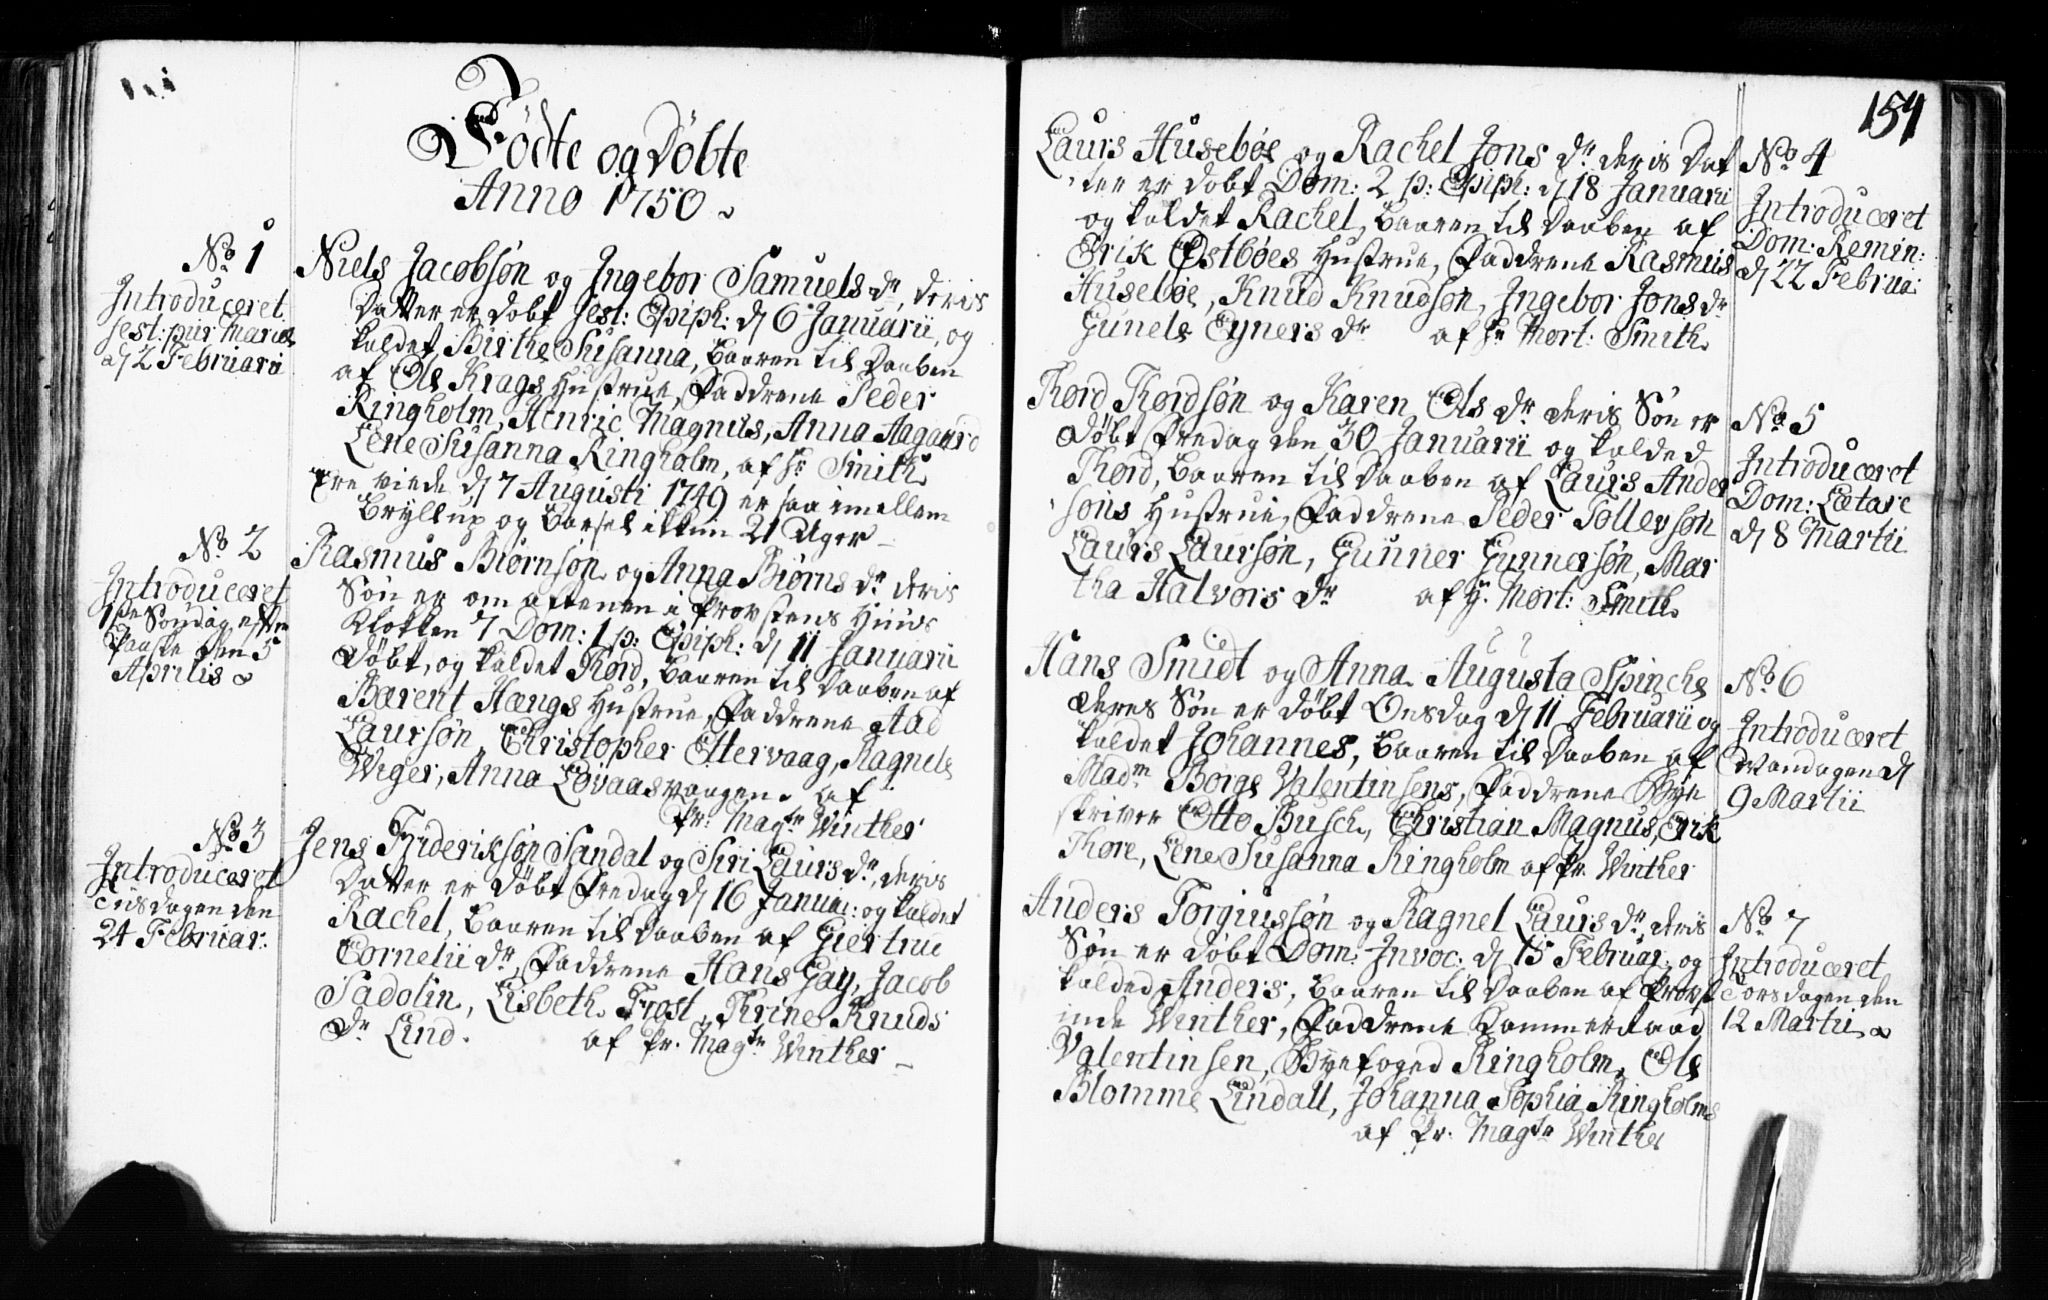 Födte og Döbte
Anno 1750
No 1
Introduceret
Fest: pur: Mariæ
d 2 Februarii
Niels Jacobsøn og Ingebor Samuels dr, deris
Datter er døbt Fest: Epiph: d 6 Januarii, og
kaldet Birthe Susanna, baaren til Daaben
af Ole Krags Hustrue, Faddrene Peder
Ringholm, Henric Magnus, Anna Aagaard
Lene Susanna Ringholm, af Hr Smith
ere viede d 7 Augusti 1749 er saa imellem
Bryllup og Barsel ikkun 21 Uger
No 2
Introduceret
1ste Søndag efter
Paaske den 5
Aprilis
Rasmus Biørnsøn og Anna Biørns dr deris
Søn er om aftenen i Provstens Huus
Klokken 7 Dom: 1 p: Epiph: d 11 Januarii
Døbt, og kaldet Thord, baaren til Daaben af
Bærent Haugs Hustrue, Faddrene Aad
Laursøn, Christopher Ettervaag, Ragnele
Wiger, Anna Løvaasvaagen. af
Pr: Magtr Winther
No 3
Introduceret
Tiisdagen den
24 Februar:
Jens Friderichsøn Sandal og Siri Laurs dr, deris
Datter er døbt Fredag d 16 Januar: og kaldet
Rachel, baaren til Daaben af Giertrue
Cornelii dr, Faddrene Hans Gay, Jacob
Sadolin, Lisbeth Frost, Thrine Knuds
Dr Lind. af Pr. Magtr Winther
154
Laurs Husebøe og Rachel Jons dr deris Dat
ter er døbt Dom: 2 p: Epiph: d 18 Januarii
og kaldet Rachel, baaren til Daaben af
Erik Østbøes Hustrue, Faddrene Rasmus
Husebøe, Knud Knudsøn, Ingebor Jons dr
Gunele Eyners dr af Hr Mort: Smith
No 4
Introduceret
Dom: Remin:
d 22 Februa:
Thord Thordsøn og Karen Ols dr deris Søn er
døbt Fredag den 30 Januarii og kalded
Thord, baaren til Daaben af Laurs Ander
søns Hustrue, Faddrene Peder Tollevsøn
Laurs Laursøn, Gunner Gunnersøn, Mar
tha Halvors dr af H: Mort: Smith
No 5
Introduceret
Dom: Lætare
d 8 Martii
Hans Smidt og Anna Augusta Spinche
deres Søn er døbt Onsdag d 11 Februarii og
kaldet Johannes, baaren til Daaben af
Madm Borge Valentinsens, Faddrene Bye
skriver Otto Busch, Christian Magnus, Erik
Thore, Lene Susanna Ringholm af Pr. Winther
No 6
Introduceret
Mandagen d
9 Martii
Anders Torgiussøn og Ragnel Laurs dr, deris
Søn er døbt Dom: Invoc: d 15 Februar: og
kalded Anders, baaren til Daaben af Provst
inde Winther, Faddrene Kammerraad
Valentinsen, Byefoged Ringholm, Ole
Blomme Lindall, Johanna Sophia Ringholms
af Pr. Magtr Winther
No 7
Introduceret
Torsdagen den
12 Martii